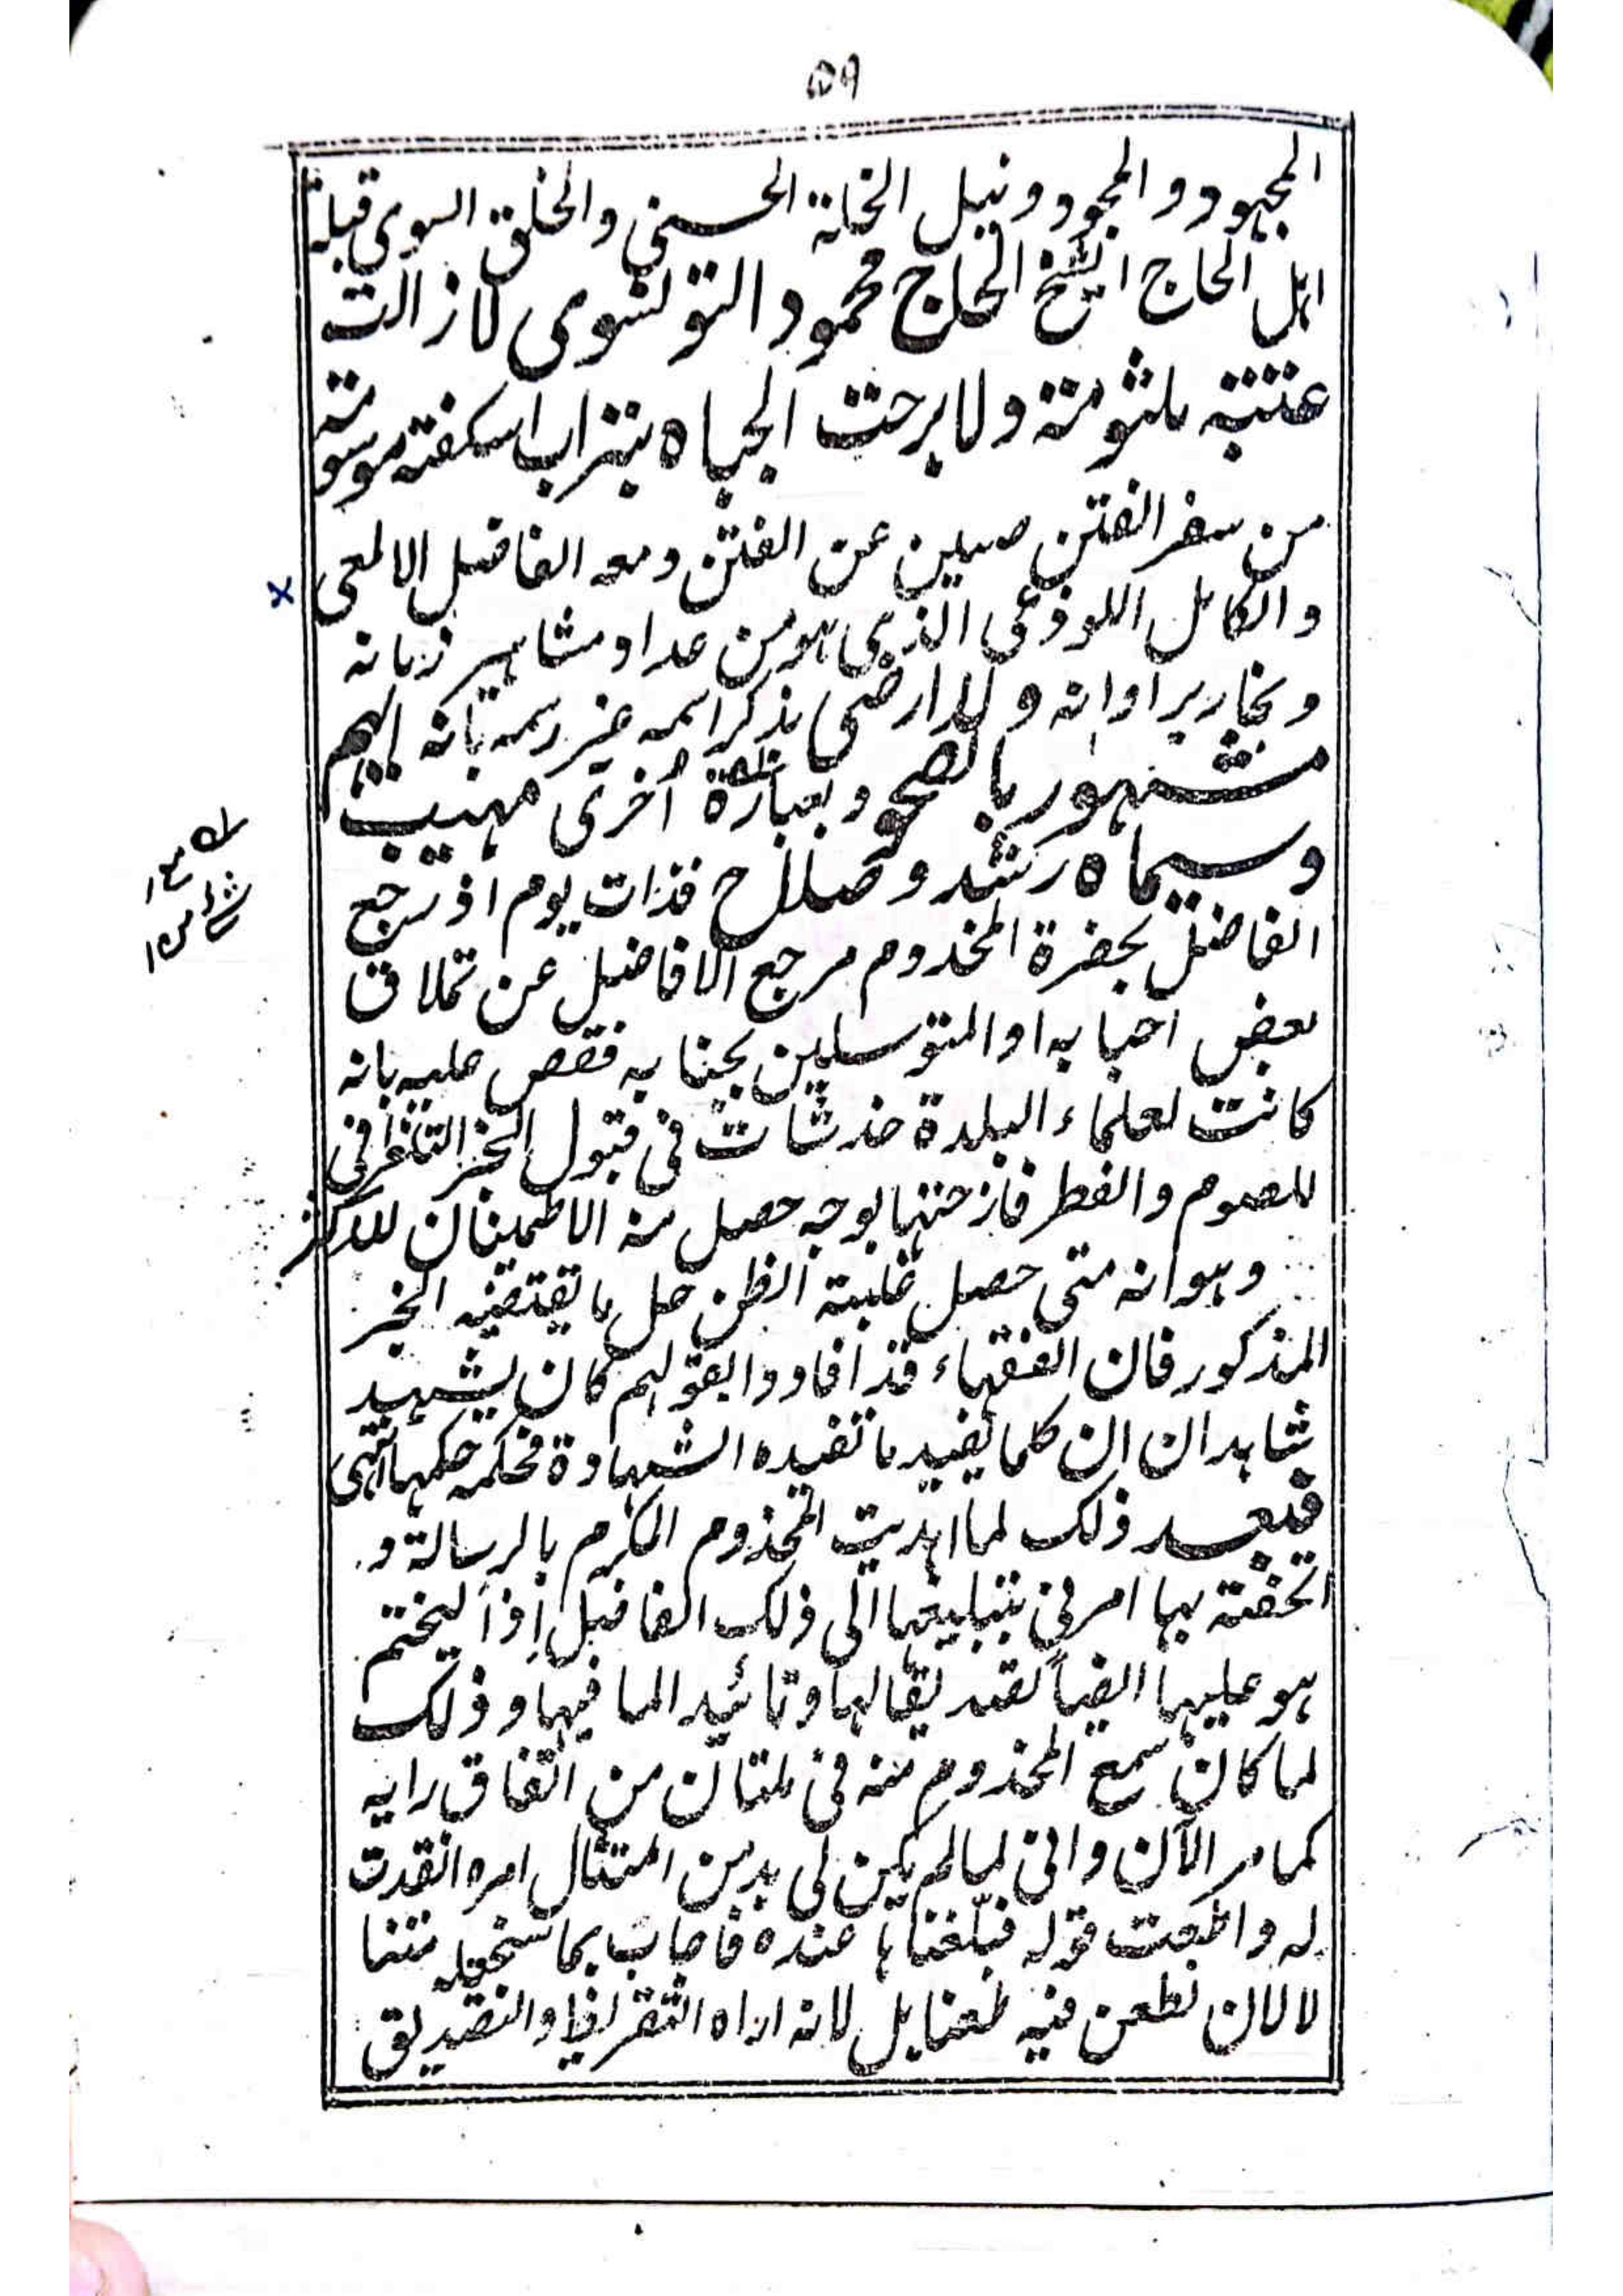 ٥٩
المجهود والمجود ونيل الخلة الحسنى والخلق السوى قبلة
اهل الحاج الشيخ الحاج محمود التونسوى لا زالت
عتبته ملثومة ولا برحت الجباه بتراب اسكفته موسومة
من سفر الفتن صين عن الفتن ومعه الفاضل الالمعى
والكامل اللوذعى الذى هو من عداد مشاهير زمانه
ونحارير اوانه ولا ارضى بذكر اسمه غير رسمه بانه
مشهور بالصحو وبعبارة اُخرى مهيب
وسيماه رشد وصلاح فذات يوم اذ رجع
الفاضل بحضرة المخدوم مرجع الافاضل عن تملاق
بعض احبابه او المتوسلين بجنابه فقص عليه بانه
كانت لعلماء البلدة خدشات فى قبول الخبر التلغرافى
للصوم والفطر فازحتها بوجه حصل منه الاطمينان للاكثر
وهو انه متى حصل غلبة الظن حل ما يقتضيه الخبر
المذكور فان الفقهاء قد افادوا بقولهم كان يشهد
شاهدان ان كلما يفيد ما تفيده الشهادة فحكمه حكمها انتهى
فبعد ذلك لما اهديت المخذوم المكرم بالرسالة و
اتحفته بها امرنى بتبليغها الى ذلك الفاضل اذاً ليختم
هو عليها ايضاً تصديقا لها وتائيدا لما فيها وذلك
لما كان سمع المخذوم منه فى ملتان من اتفاق رايه
كما مر الآن وانى لما لم يكن لى بد من امتثال امره انقدت
له واطعت قوله فبلّغناها عنده فاجاب بما سنحققه متنا
لا لان نطعن فيه طعنا بل لانه اراه التقراظ والتصديق